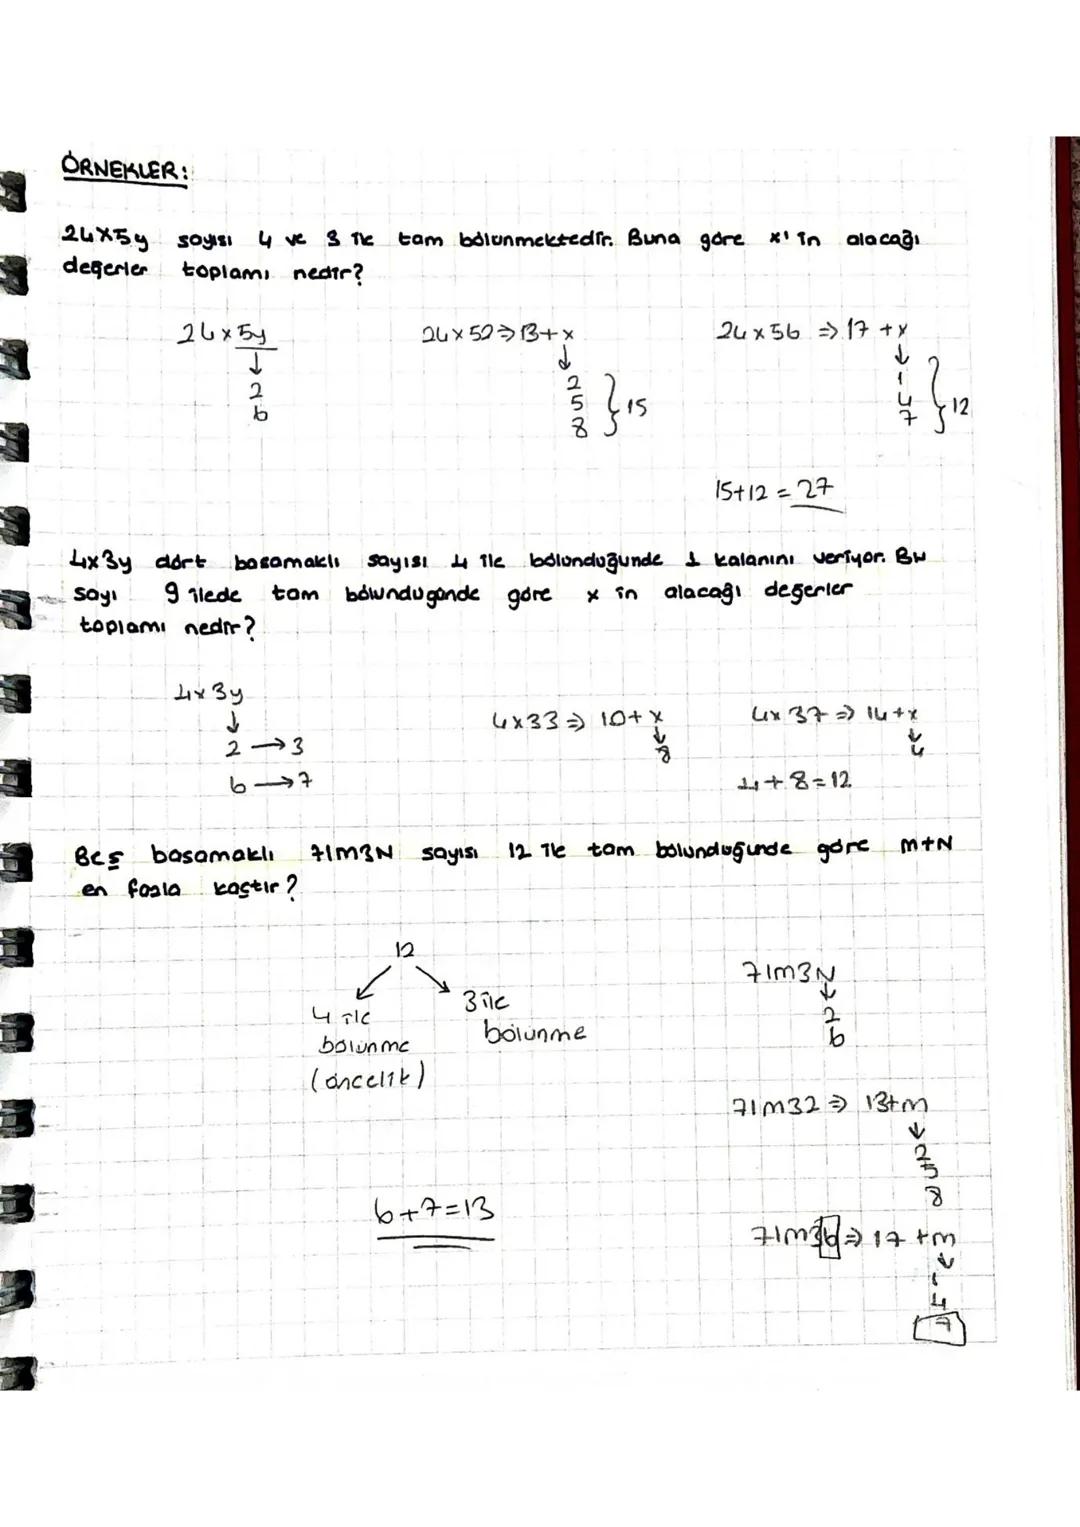 ÖRNEKLER:
24X5y sayısı 4 ve 3 ile tam bölünmektedir. Buna göre x'in alacağı
değerler toplamı nedir?
24x5y
↓
2
6
24x52⇒13+x
↓
2
5
8
}15
24x56 ⇒ 17 +x
↓
1
4
7
}12
15+12=27
4x3y dört basamaklı sayısı 4 ile bölünduğunde 1 kalanını veriyor. Bu
sayı 9 ilede tam bölündugünde göre x in alacağı değerler
toplamı nedir?
4x3y
↓
2→3
6→7
4x33⇒10+x
↓
8
4x37⇒14+x
↓
4
4+8=12
Beş basamaklı 71M3N sayısı 12 ile tam bölunduğunde göre M+N
en fazla kaçtır?
12
↙ ↘
4 ile
bölünme
(öncelik)
3 ile
bölünme
71M3N
↓
2
6
71M32⇒13+M
↓
2
5
8
71M36⇒17+M
↓
1
4
7
6+7=13